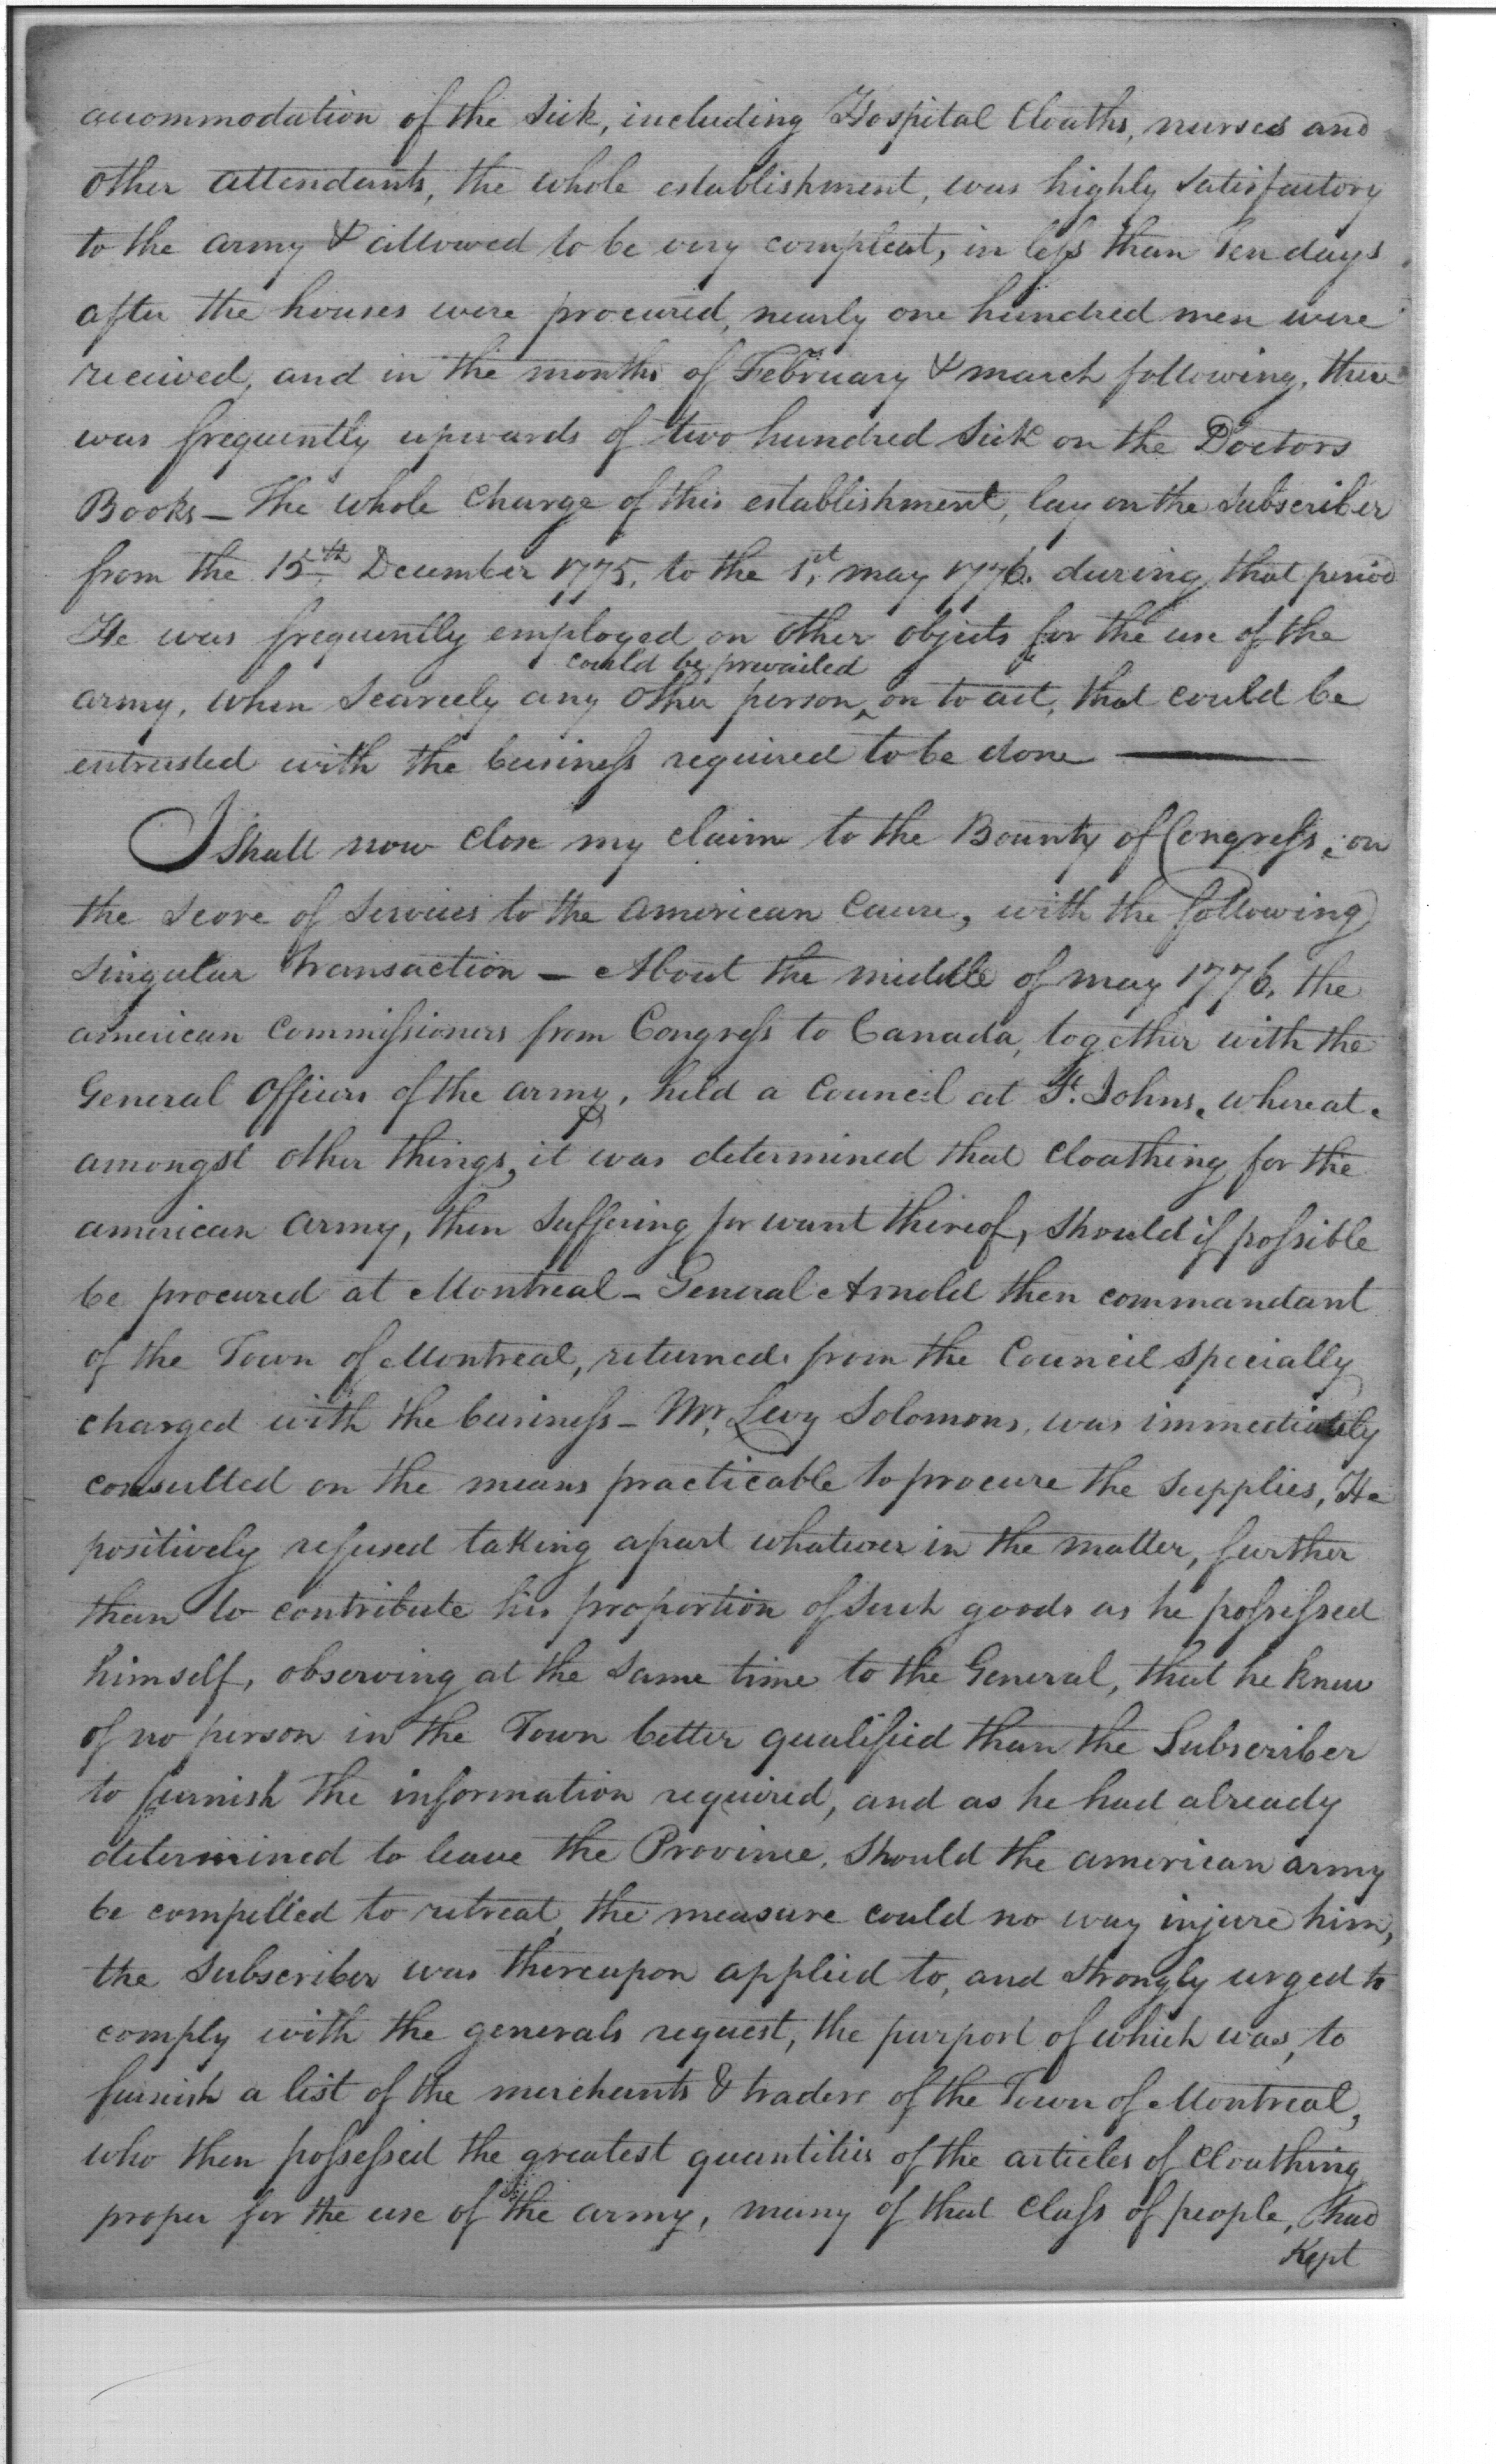 accommodation of the Sick, including Hospital Cloaths, nurses and
other attendants, the whole establishment, was highly Satisfactory
to the army & allowed to be very compleat, in less than Ten days
after the houses were procured, nearly one hundred men were
received, and in the months of February & march following, there
was frequently upwards of two hundred Sick on the Doctors
Books – The whole Charge of this establishment, lay on the Subscriber
from the 15th December 1775, to the 1st may 1776. during that period
He was frequently employed on other objects for the use of the
could be prevailed
army, when Scarcely any other person ^ on to act, that could be
entrusted with the business required to be done —
I Shall now Close my claim to the Bounty of Congress, on
the Score of Services to the American Cause, with the following
Singular transaction – About the middle of may 1776, the
american Commissioners from Congress to Canada, together with the
General Officers of the army, held a Council at St. Johns, whereat,
amongst other things, it was determined that Cloathing for the
american Army, then Suffering for want thereof, Should if possible
be procured at Montreal – General Arnold then commandant
of the Town of Montreal, returned from the Council Specially
charged with the business – Mr. Levy Solomons, was immediately
consulted on the means practicable to procure the Supplies, He
positively refused taking apart whatever in the matter, further
than to contribute his proportion of Such goods as he possessed
himself, observing at the Same time to the General, that he knew
of no person in the Town better qualified than the Subscriber
to furnish the information required, and as he had already
determined to leave the Province, Should the american army
be compelled to retreat, the measure could no way injure him,
the Subscriber was thereupon applied to, and Strongly urged to
comply with the generals request, the purport of which was, to
furnish a list of the merchants & traders of the Town of Montreal,
who then possessed the greatest quantities of the articles of Cloathing
proper for the use of the army, many of that Class of people, had
Kept